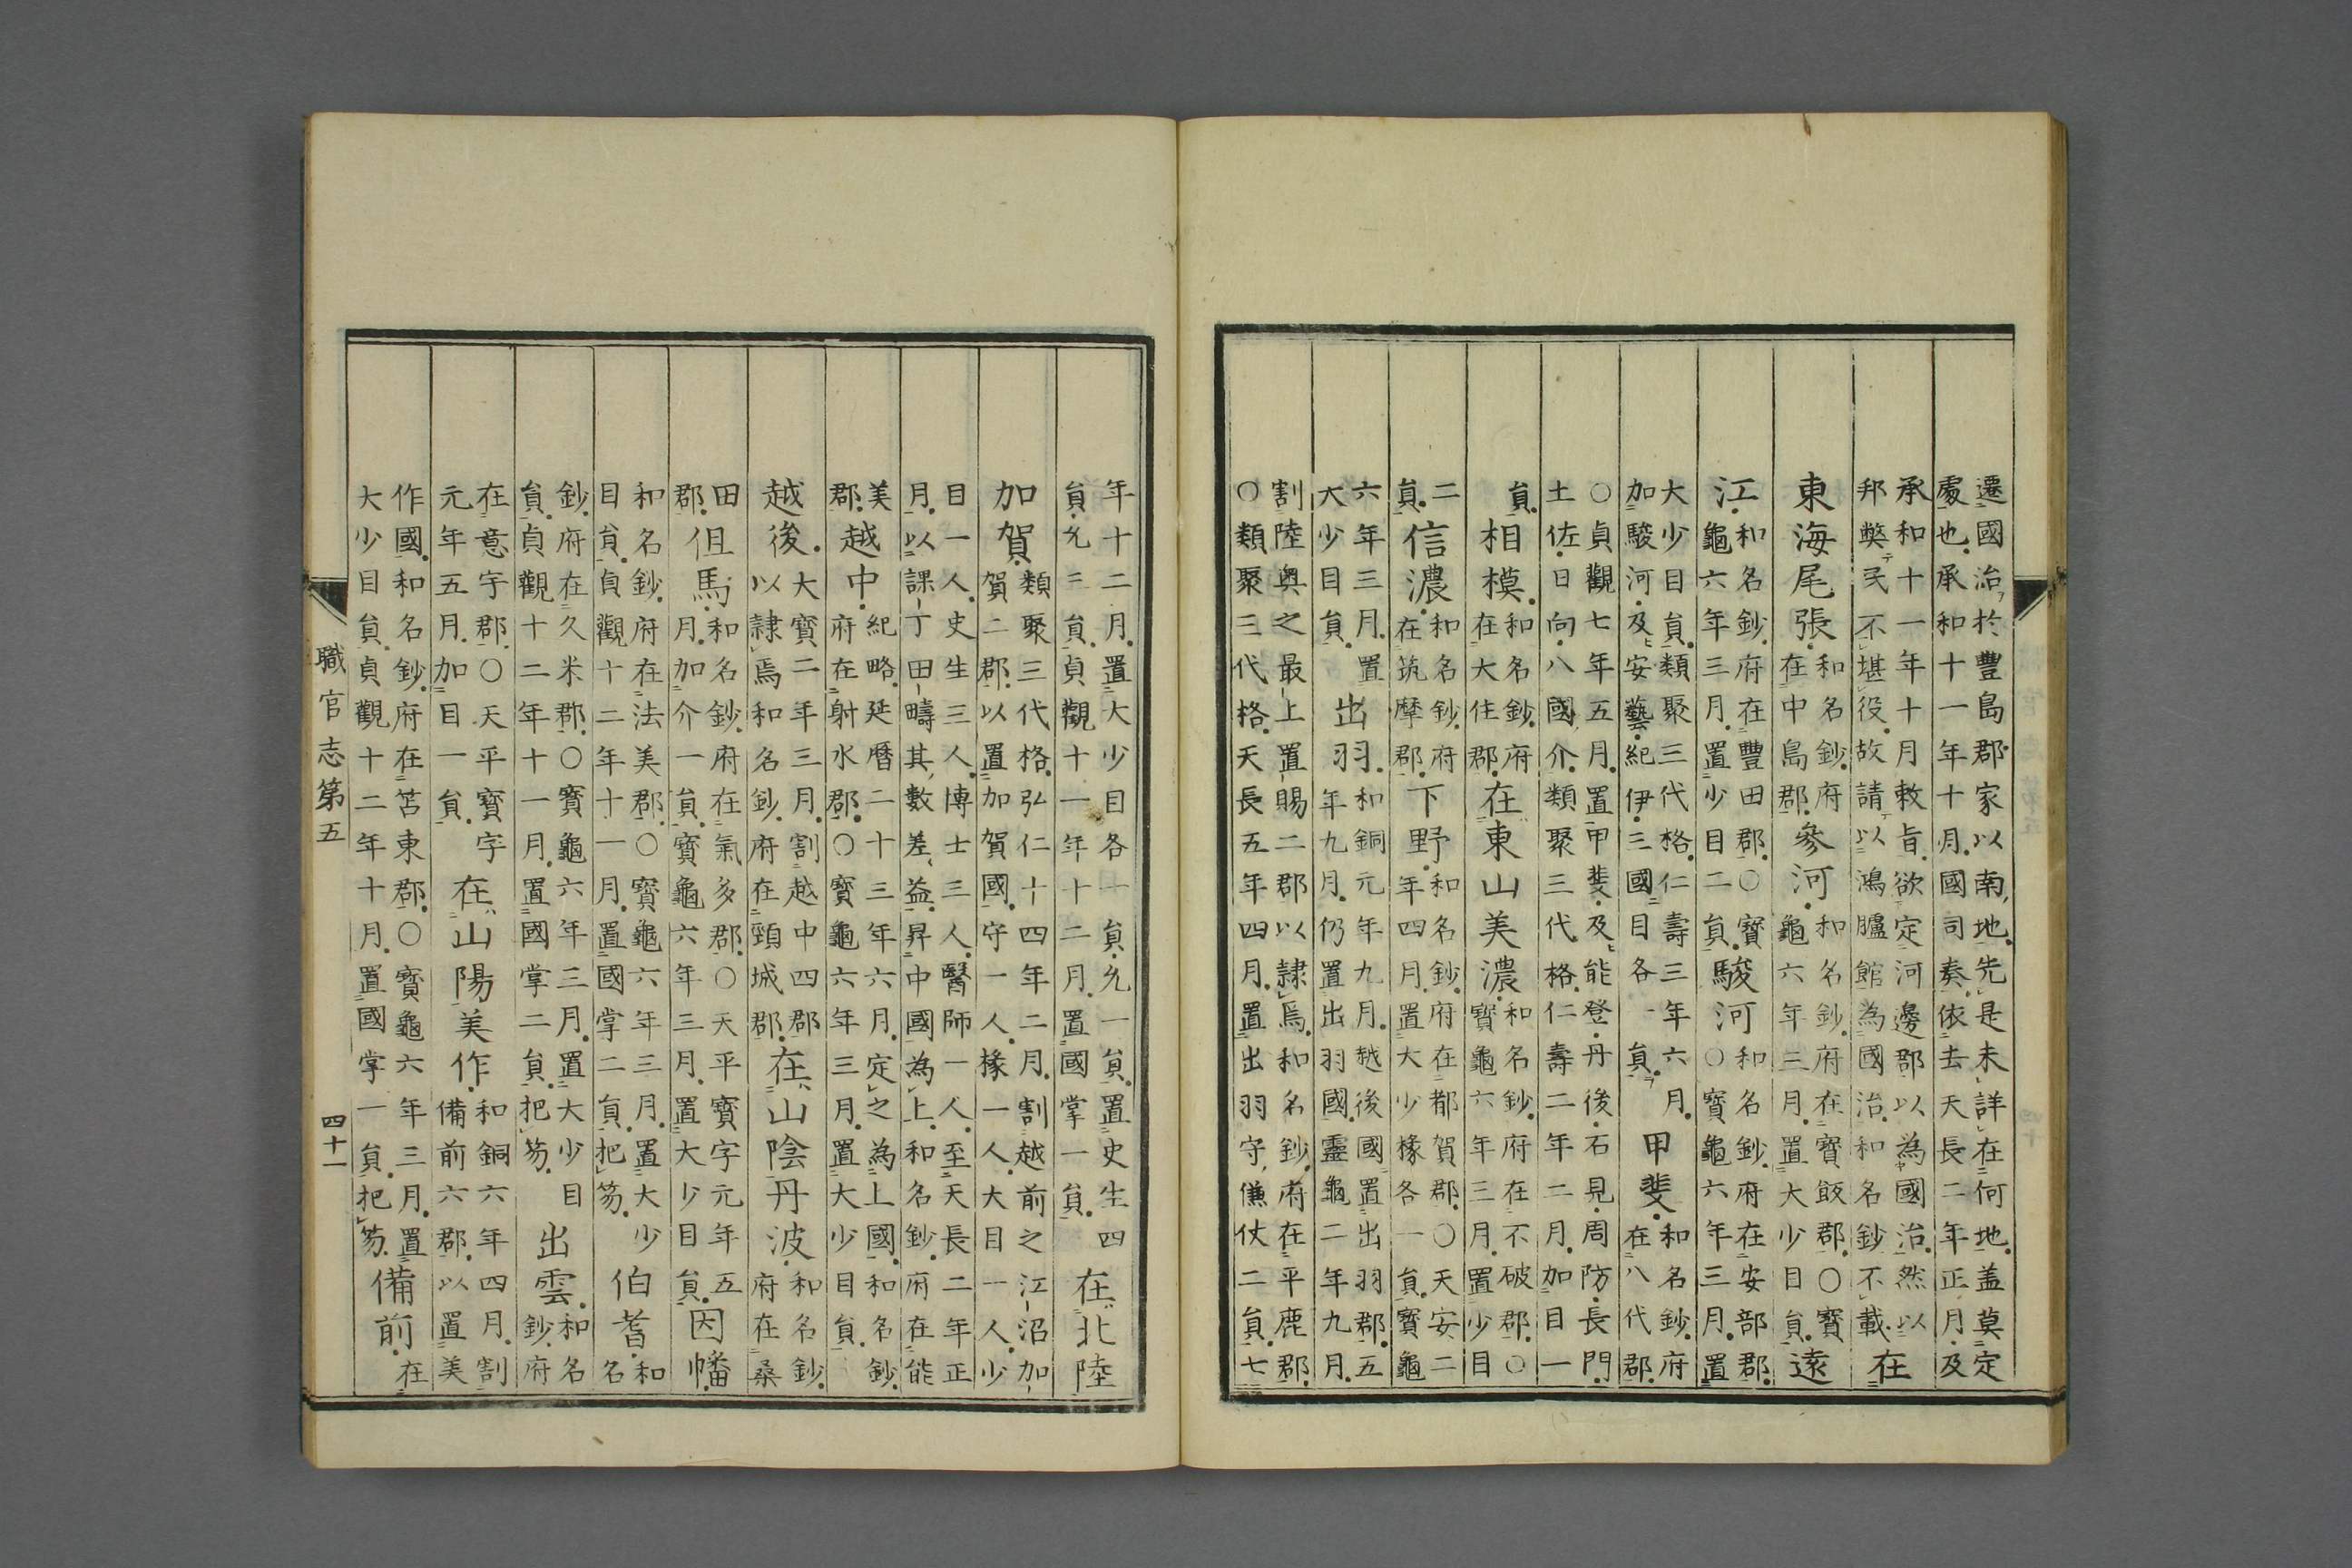 遷國治於豐島郡家以南地先是未詳在何地盖莫定
處也承和十一年十月國司奏依去天長二年正月及
承和十一年十月敕旨欲定河邊郡以為國治然以
邦獘民不堪役故請以鴻臚館為國治和名鈔不載在
東海尾張和名鈔府
在中島郡參河和名鈔府在寶飯郡〇寶
龜六年三月置大少目員遠
江和名鈔府在豐田郡〇寶
龜六年三月置少目二員駿河和名鈔府在安部郡
〇寶龜六年三月置
大少目員類聚三代格仁壽三年六月
加駿河及安藝紀伊三國目各一員甲斐和名鈔府
在八代郡
〇貞觀七年五月置甲斐及能登丹後石見周防長門
土佐日向八國介類聚三代格仁壽二年二月加目一
員相模和名鈔府
在大住郡在東山美濃和名鈔府在不破郡〇
寶龜六年三月置少目
二
員信濃和名鈔府
在筑摩郡下野和名鈔府在都賀郡〇天安二
年四月置大少掾各一員寶龜
六年三月置
大少目員出羽和銅元年九月越後國置出羽郡五
年九月仍置出羽國靈龜二年九月
割陸奥之最上置賜二郡以隷焉和名鈔府在平鹿郡
〇類聚三代格天長五年四月置出羽守傔仗二員七
年十二月置大少目各一員允一員置史生四
員允三員貞觀十一年十二月置國掌一員在北陸
加賀類聚三代格弘仁十四年二月割越前之江沼加
賀二郡以置加賀國守一人掾一人大目一人少
目一人史生三人博士三人醫師一人至天長二年正
月以課丁田疇其數差益昇中國為上和名鈔府在能
美
郡越中紀略延暦二十三年六月定之為上國和名鈔
府在射水郡〇寶龜六年三月置大少目員
越後大寶二年三月割越中四郡
以隷焉和名鈔府在頸城郡在山陰丹波和名鈔
府在桑
田
郡但馬和名鈔府在氣多郡〇天平寶字元年五
月加介一員寶龜六年三月置大少目員因幡
和名鈔府在法美郡〇寶龜六年三月置大少
目員貞觀十二年十一月置國掌二員把笏伯耆和
名
鈔府在久米郡〇寶龜六年三月置大少目
員貞觀十二年十一月置國掌二員把笏出雲和名
鈔府
在意宇郡〇天平寶字
元年五月加目一員在山陽美作和銅六年四月割
備前六郡以置美
作國和名鈔府在笘東郡〇寶龜六年三月置
大少目員貞觀十二年十月置國掌一員把笏備前在
職官志第五
四十一